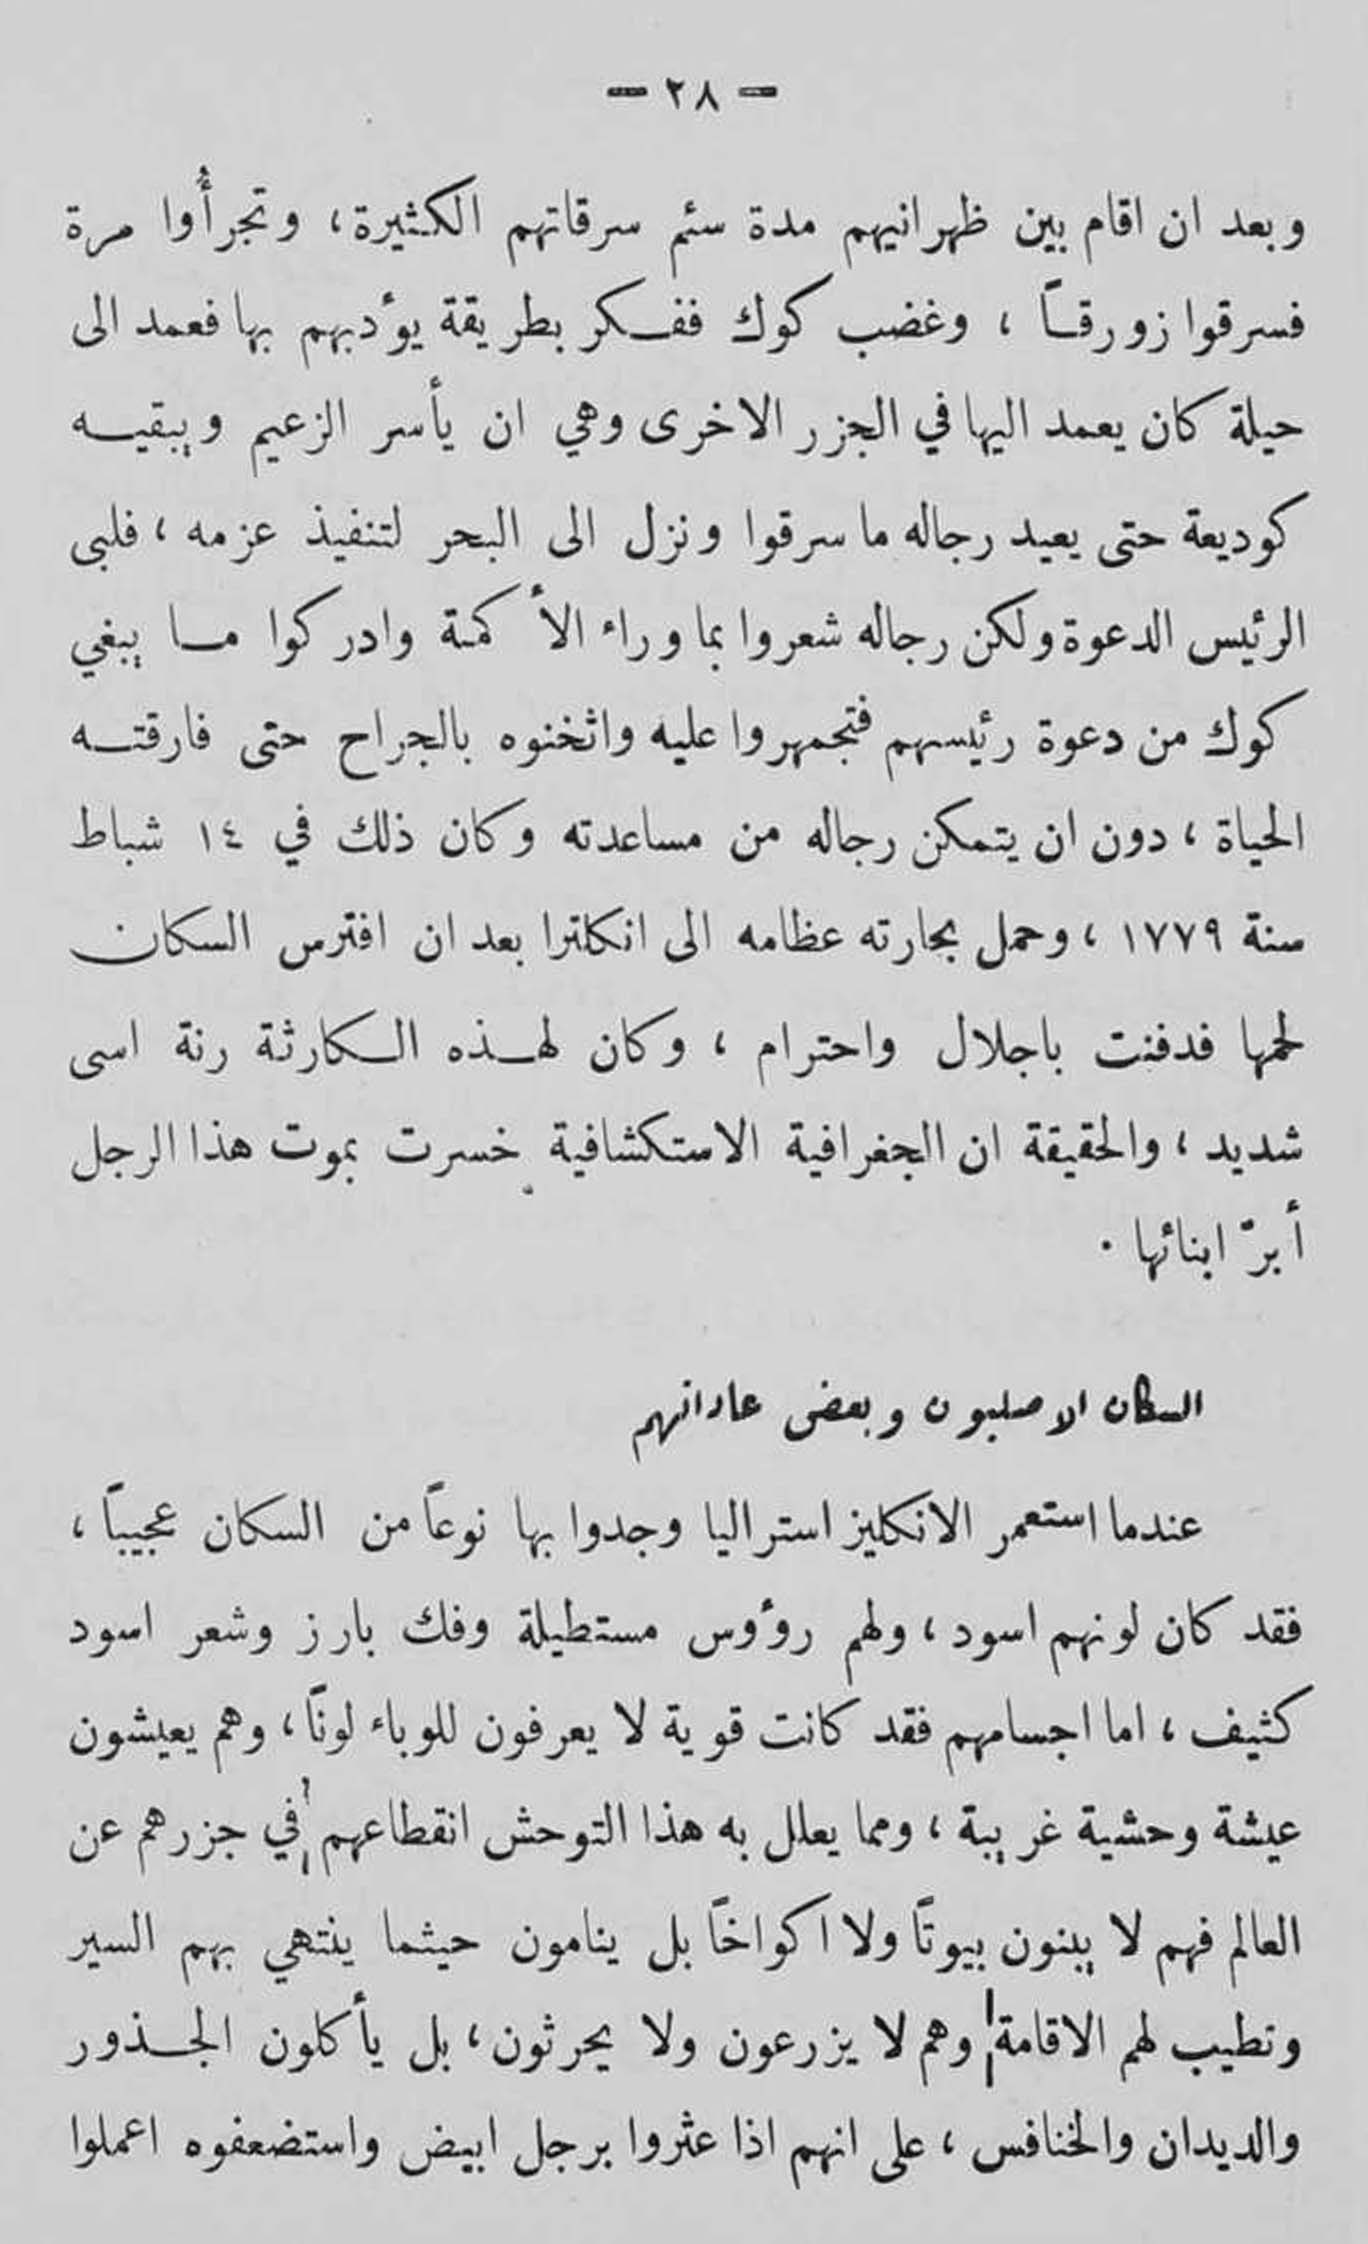 — ٢٨ —
وبعد ان اقام بين ظهرانيهم مدة سئم سرقاتهم الكثيرة، وتجرأُوا مرة
فسرقوا زورقاً ، وغضب كوك ففكر بطريقة يؤدبهم بها فعمد الى
حيلة كان يعمد اليها في الجزر الاخرى وهي ان يأسر الزعيم ويبقيه
كوديعة حتى يعيد رجاله ما سرقوا ونزل الى البحر لتنفيذ عزمه ، فلبى
الرئيس الدعوة ولكن رجاله شعروا بما وراء الأكمة وادركوا ما يبغي
كوك من دعوة رئيسهم فتجمهروا عليه واثخنوه بالجراح حتى فارقته
الحياة ، دون ان يتمكن رجاله من مساعدته وكان ذلك في ١٤ شباط
سنة ١٧٧٩ ، وحمل بحارته عظامه الى انكلترا بعد ان افترس السكان
لحمها فدفنت باجلال واحترام ، وكان لهذه الكارثة رنة اسى
شديد ، والحقيقة ان الجغرافية الاستكشافية خسرت بموت هذا الرجل
أبرّ ابنائها .
السكان الاصليون وبعض عاداتهم
عندما استعمر الانكليز استراليا وجدوا بها نوعاً من السكان عجيباً ،
فقد كان لونهم اسود ، ولهم رؤوس مستطيلة وفك بارز وشعر اسود
كثيف ، اما اجسامهم فقد كانت قوية لا يعرفون للوباء لوناً ، وهم يعيشون
عيشة وحشية غريبة ، ومما يعلل به هذا التوحش انقطاعهم في جزرهم عن
العالم فهم لا يبنون بيوتاً ولا اكواخاً بل ينامون حيثما ينتهي بهم السير
وتطيب لهم الاقامة وهم لا يزرعون ولا يحرثون ، بل يأكلون الجذور
والديدان والخنافس ، على انهم اذا عثروا برجل ابيض واستضعفوه اعملوا